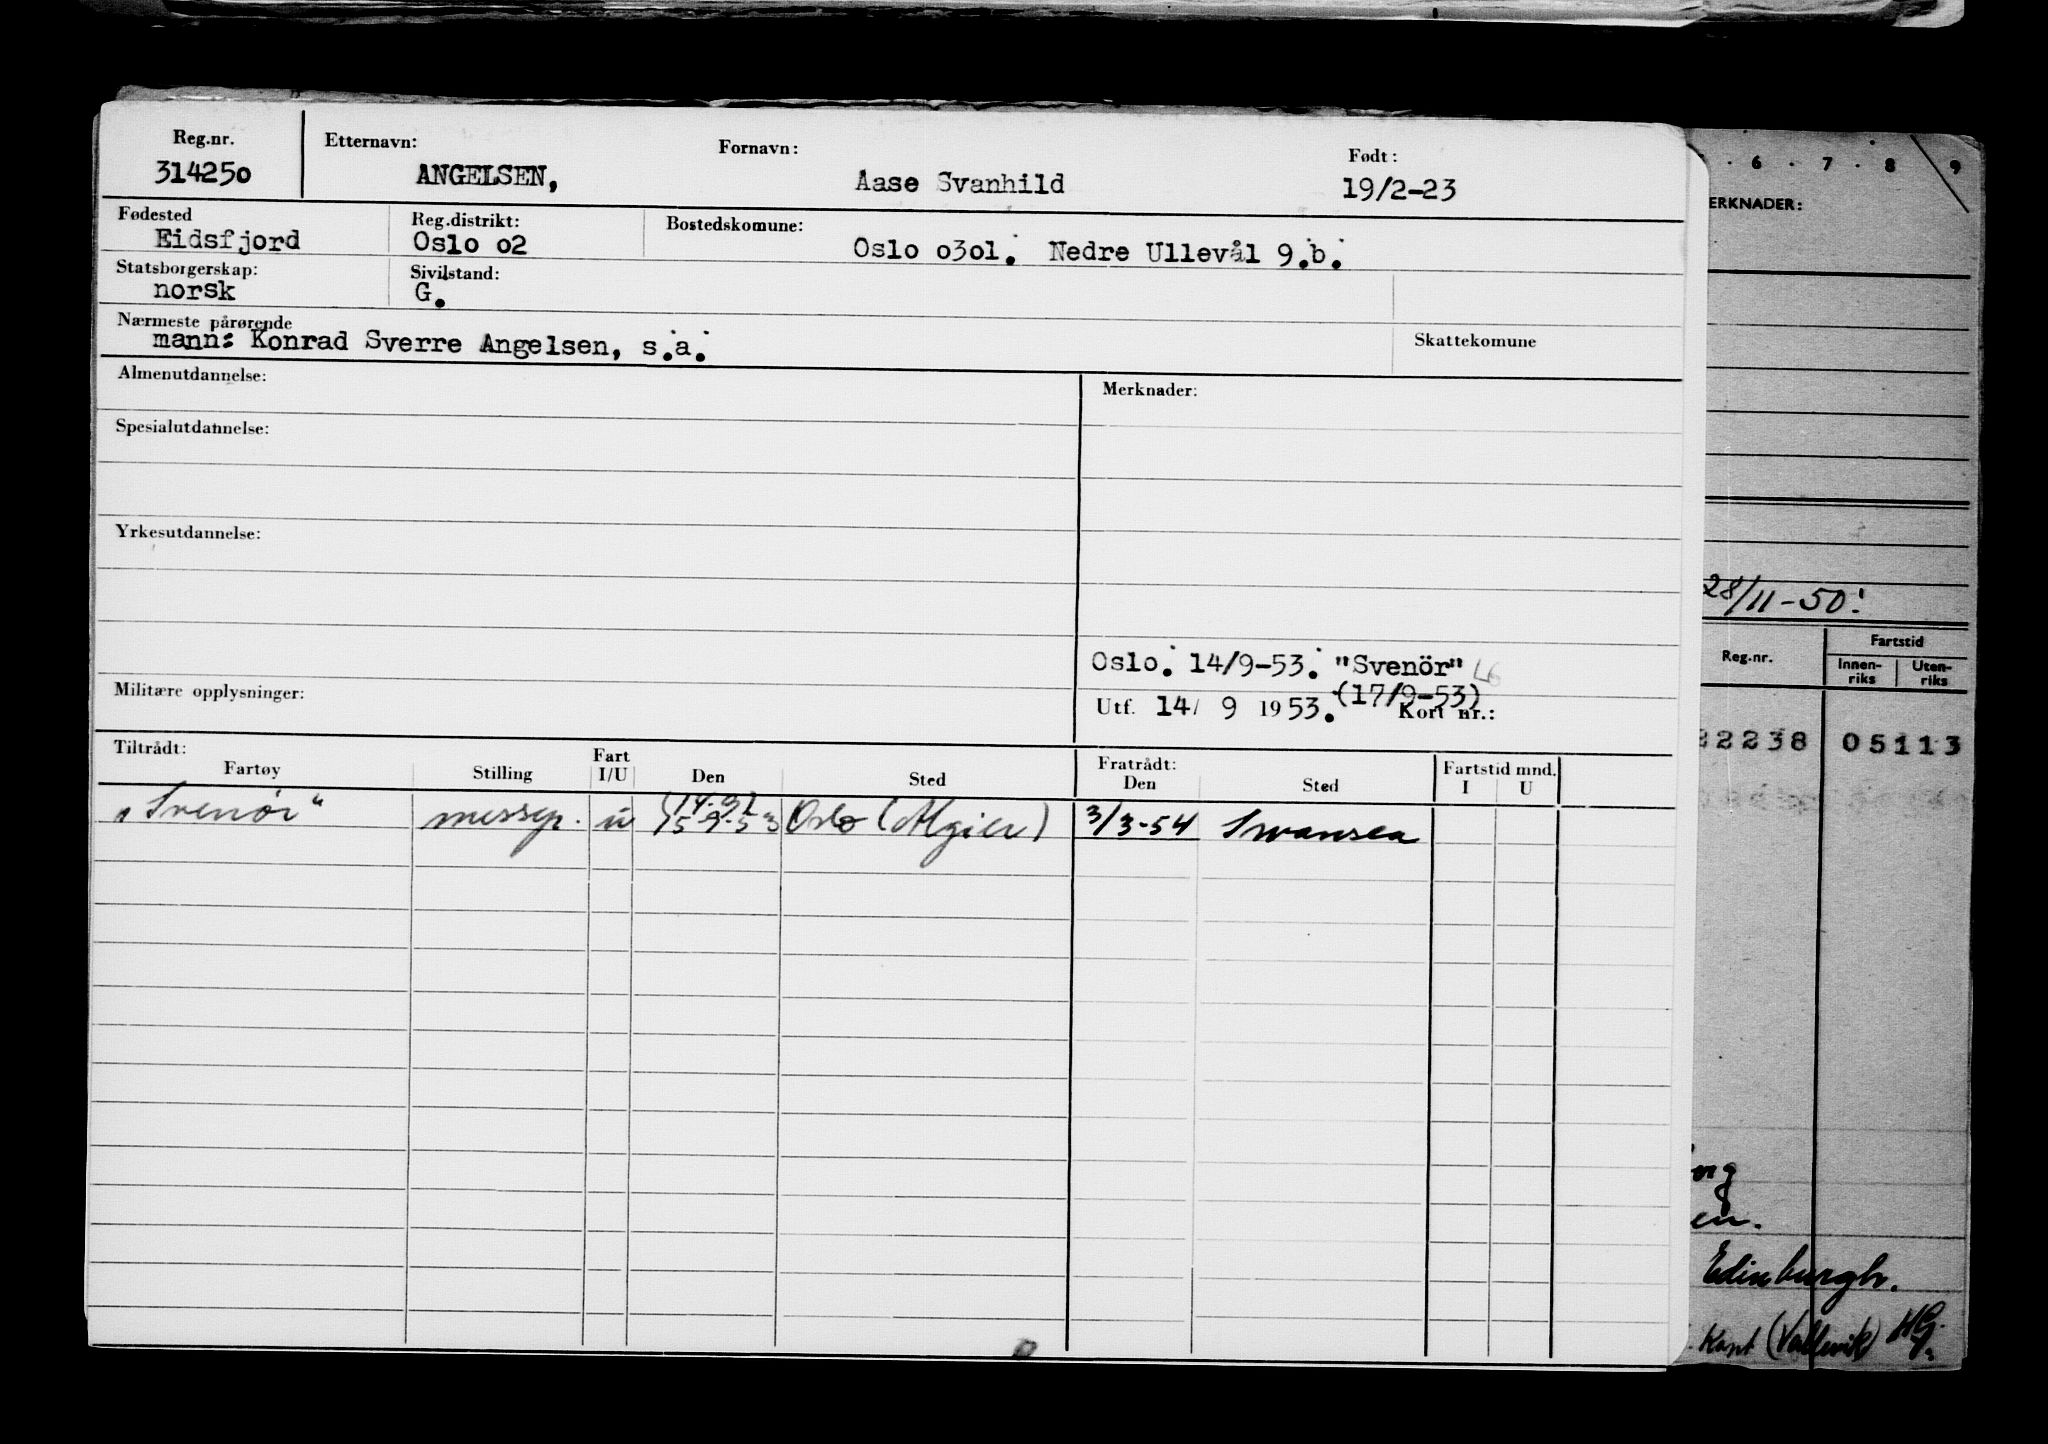 Reg.nr. Etternavn: Fornavn: Født:
314250 ANGELSEN, Aase Svanhild 19/2-23
Fødested Reg.distrikt: Bostedskomune:
Eidsfjord Oslo o2 Oslo o3o1. Nedre Ullevål 9.b.
Statsborgerskap: Sivilstand:
norsk G.
Nærmeste pårørende Skattekomune
mann: Konrad Sverre Angelsen, s.a.
Almenutdannelse: Merknader:
Spesialutdannelse:
Yrkesutdannelse:
Oslo. 14/9-53. "Svenör"
Militære opplysninger: Utf. 14/ 9 1953. (17/9-53) Kort nr.:
Tiltrådt: Fart Fratrådt: Fartstid mnd.
Fartøy Stilling I/U Den Sted Den Sted I U
"Svenör" messep. u 15-9-53 Oslo (Algier) 3/3-54 Swansea
6 . 7 . 8 9
ERKNADER:
28/11-50!
Reg.nr. Fartstid
Innen-riks Uten-riks
22238 05113
en.
Edinburgh.
Kont (Vallevik) HG.